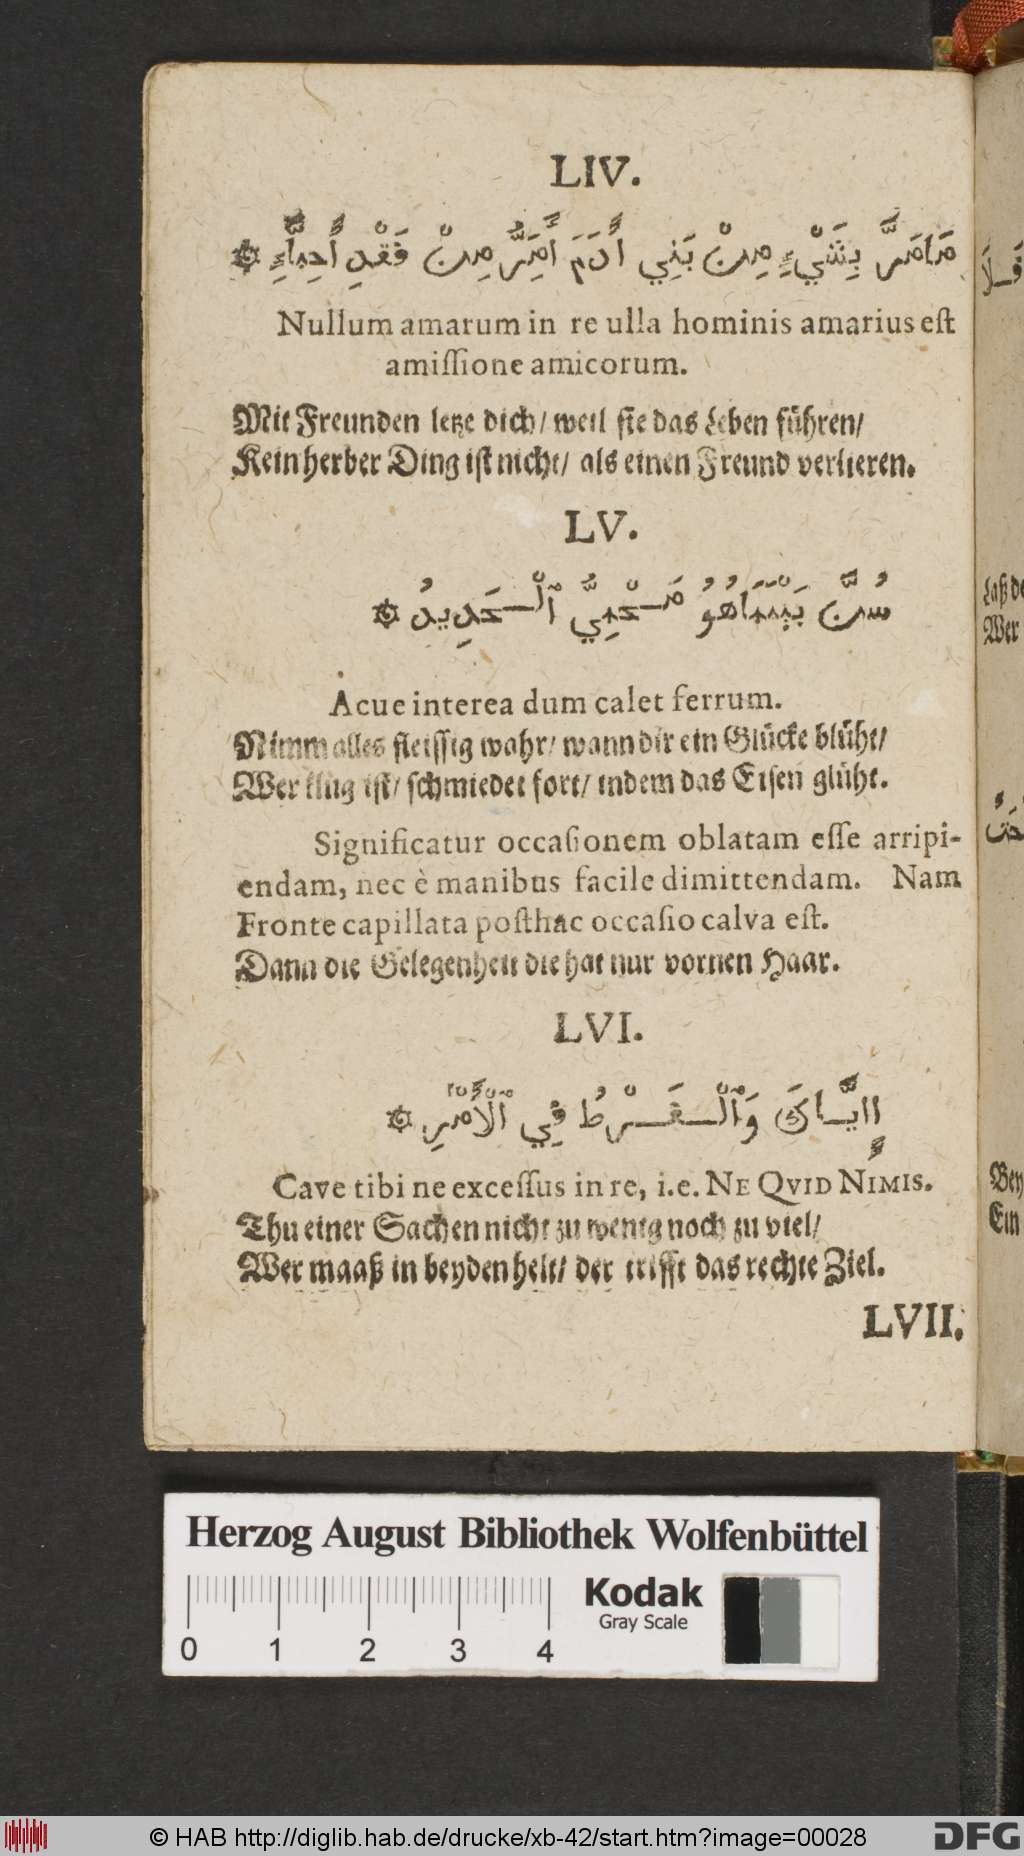 LIV.
مَا مَرَّ بِشَيْءٍ مِنْ بَنِي أَدَمَ أَمَرُّ مِنْ فَقْدِ أَحِبَّاءِ
Nullum amarum in re ulla hominis amarius eſt
amiſſione amicorum.
Mit Freunden letze dich/ weil ſie das Leben führen/
Kein herber Ding iſt nicht/ als einen Freund verlieren.
LV.
سُنَّ بَيْنَمَا هُوُ مَحْمِيُّ ٱلْحَدِيدُ
Acue interea dum calet ferrum.
Nimm alles fleiſſig wahr/ wann dir ein Glücke blüht/
Wer klug iſt/ ſchmiedet fort/ indem das Eiſen glüht.
Significatur occaſionem oblatam eſſe arripi-
endam, nec è manibus facile dimittendam. Nam
Fronte capillata poſthac occaſio calva eſt.
Dann die Gelegenheit die hat nur vornen Haar.
LVI.
اايَّاكَ وَٱلْفَرْطُ فِي ٱلْأَمْرِ
Cave tibi ne exceſſus in re, i.e. NE QVID NIMIS.
Thu einer Sachen nicht zu wenig noch zu viel/
Wer maaß in beyden helt/ der trifft das rechte Ziel.
LVII.
Laß de
Wer
Bey
Ein
Herzog August Bibliothek Wolfenbüttel
Kodak
Gray Scale
0 1 2 3 4
© HAB http://diglib.hab.de/drucke/xb-42/start.htm?image=00028
DFG